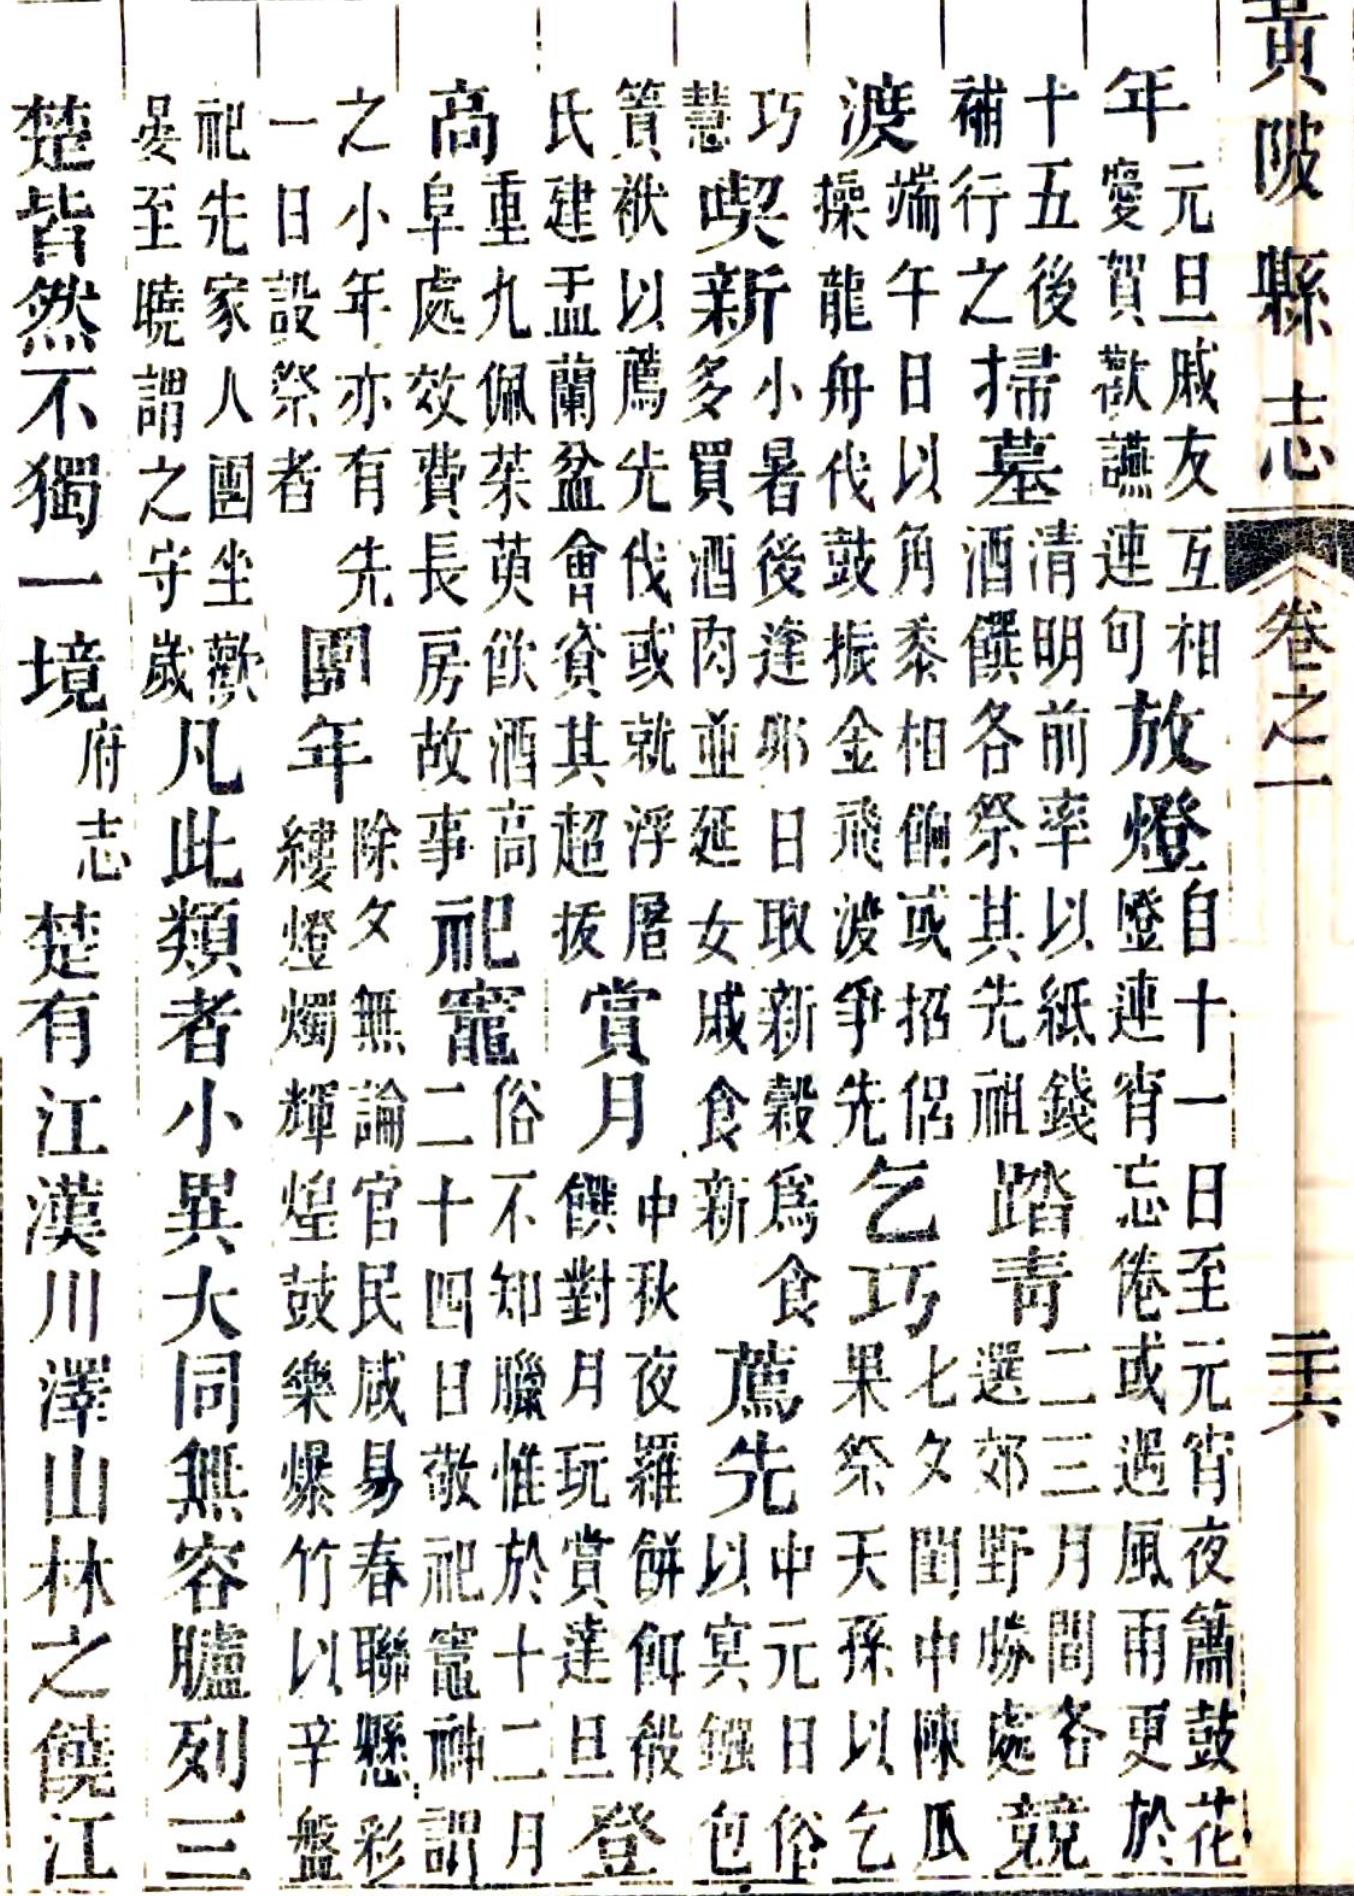 黃陂縣志 卷之一 二十六
年元旦戚友互相慶賀歡讌連句放燈自十一日至元宵夜簫鼓花燈連宵忘倦或遇風雨更於
十五後補行之掃墓清明前率以紙錢酒饌各祭其先祖踏青二三月間各選郊野勝處競
渡端午日以角黍相餉或招侶操龍舟伐鼓振金飛渡爭先乞巧七夕閨中陳瓜果祭天孫以乞
巧慧喫新小暑後逢卯日取新穀爲食多買酒肉並延女戚食新薦先中元日俗以冥鏹包
籫袱以薦先伐或就浮屠氏建盂蘭盆會資其超拔賞月中秋夜羅餅餌殽饌對月玩賞達旦登
高重九佩茱萸飲酒高阜處效費長房故事祀竈俗不知臘惟於十二月二十四日敬祀竈神謂
之小年亦有先一日設祭者團年除夕無論官民咸易春聯懸彩縷燈燭輝煌鼓樂爆竹以辛盤
祀先家人團坐歡晏至曉謂之守歲凡此類者小異大同無容臚列三
楚皆然不獨一境府志楚有江漢川澤山林之饒江